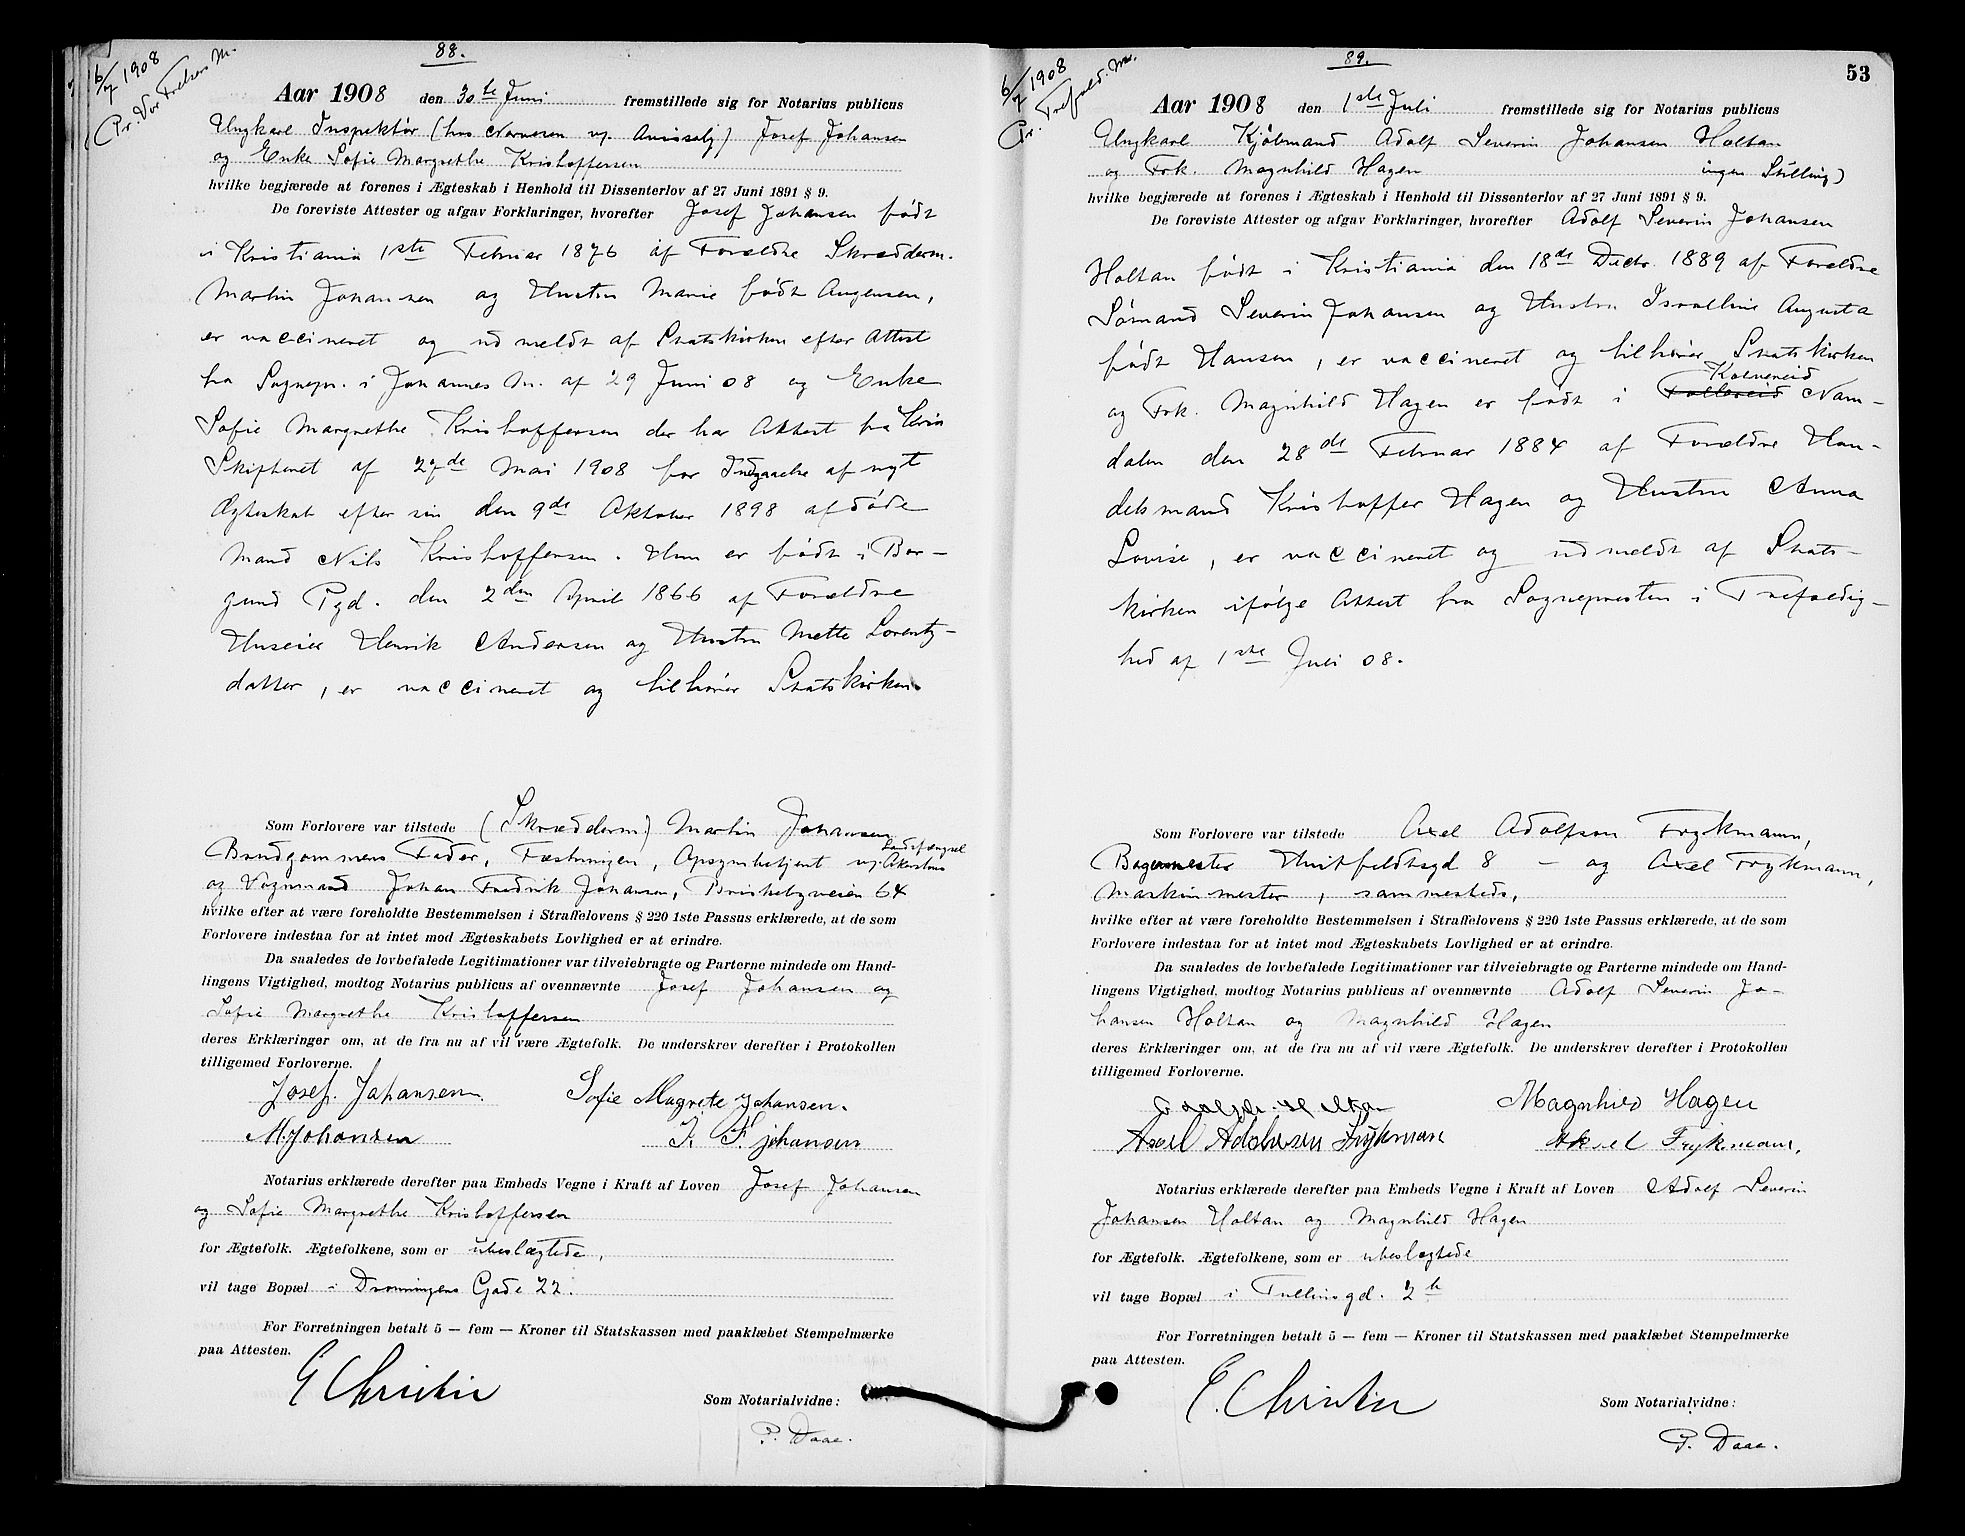 6/7 1908
Pr. Vor Frelsers M.
88.
Aar 1908 den 30te Juni fremstillede sig for Notarius publicus
Ungkarl Inspektør (hos Narvesen vg. Avissalg) Josef Johansen
og Enke Sofie Margrethe Kristoffersen
hvilke begjærede at forenes i Ægteskab i Henhold til Dissenterlov af 27 Juni 1891 § 9.
De foreviste Attester og afgav Forklaringer, hvorefter Josef Johansen født
i Kristiania 1ste Februar 1876 af Forældre Skrædderm.
Martin Johansen og Hustru Marie født Augensen,
er vaccineret og udmeldt af Statskirken efter Attest
fra Sognepr. i Johannes M. af 29 Juni 08 og Enke
Sofie Margrethe Kristoffersen der har Attest fra Kria
Skifteret af 27de Mai 1908 for Indgaaelse af nyt
Ægteskab efter sin den 9de Oktober 1898 afdøde
Mand Nils Kristoffersen. Hun er født i Bor-
gund Pgd. den 2den April 1866 af Forældre
Huseier Henrik Andersen og Hustru Mette Lorentz-
datter, er vaccineret og tilhører Statskirken.
Som Forlovere var tilstede (Skrædderm) Martin Johansen
Brudgommens Fader, Fæstningen, Opsynsbetjent vg. Akershus Landsfængsel
og Vognmand Johan Fredrik Johansen, Briskebyveien 64
hvilke efter at være foreholdte Bestemmelsen i Straffelovens § 220 1ste Passus erklærede, at de som
Forlovere indestaa for at intet mod Ægteskabets Lovlighed er at erindre.
Da saaledes de lovbefalede Legitimationer var tilveiebragte og Parterne mindede om Hand-
lingens Vigtighed, modtog Notarius publicus af ovennævnte Josef Johansen og
Sofie Margrethe Kristoffersen
deres Erklæringer om, at de fra nu af vil være Ægtefolk. De underskrev derefter i Protokollen
tilligemed Forloverne.
Josef. Johansen Sofie Magrete Johansen.
M. Johansen J. F. johansen
Notarius erklærede derefter paa Embeds Vegne i Kraft af Loven Josef Johansen
og Sofie Margrethe Kristoffersen
for Ægtefolk. Ægtefolkene, som er ubeslægtede,
vil tage Bopæl i Dronningens Gade 22.
For Forretningen betalt 5 — fem — Kroner til Statskassen med paaklæbet Stempelmærke
paa Attesten.
E Christie
Som Notarialvidne:
P. Daae.
53
6/7 1908
Pr. Trefold. M.
89.
Aar 1908 den 1ste Juli fremstillede sig for Notarius publicus
Ungkarl Kjøbmand Adolf Severin Johansen Holtan
og Frk. Magnhild Hagen ingen Stilling)
hvilke begjærede at forenes i Ægteskab i Henhold til Dissenterlov af 27 Juni 1891 § 9.
De foreviste Attester og afgav Forklaringer, hvorefter Adolf Severin Johansen
Holtan født i Kristiania den 18de Decbr 1889 af Forældre
Sømand Severin Johansen og Hustru Israeline Augusta
født Hansen, er vaccineret og tilhører Statskirken
og Frk. Magnhild Hagen er født i Kolvereid Nam-
dalen den 28de Februar 1884 af Forældre Han-
delsmand Kristoffer Hagen og Hustru Anna
Lovise, er vaccineret og udmeldt af Stats-
kirken ifølge Attest fra Sognepresten i Trefoldig-
hed af 1ste Juli 08.
Som Forlovere var tilstede Axel Adolfson Frykmann,
Bagermester Huitfeldtsgd 8 — og Axel Frykmann,
Maskinmester, sammesteds,
hvilke efter at være foreholdte Bestemmelsen i Straffelovens § 220 1ste Passus erklærede, at de som
Forlovere indestaa for at intet mod Ægteskabets Lovlighed er at erindre.
Da saaledes de lovbefalede Legitimationer var tilveiebragte og Parterne mindede om Hand-
lingens Vigtighed, modtog Notarius publicus af ovennævnte Adolf Severin Jo-
hansen Holtan og Magnhild Hagen
deres Erklæringer om, at de fra nu af vil være Ægtefolk. De underskrev derefter i Protokollen
tilligemed Forloverne.
Magnhild Hagen
Axel Adolfsson Frykman Aksel Frykmann,
Notarius erklærede derefter paa Embeds Vegne i Kraft af Loven Adolf Severin
Johansen Holtan og Magnhild Hagen
for Ægtefolk. Ægtefolkene, som er ubeslægtede
vil tage Bopæl i Tullinsgd. 2 b
For Forretningen betalt 5 — fem — Kroner til Statskassen med paaklæbet Stempelmærke
paa Attesten.
E. Christie
Som Notarialvidne:
P. Daae.